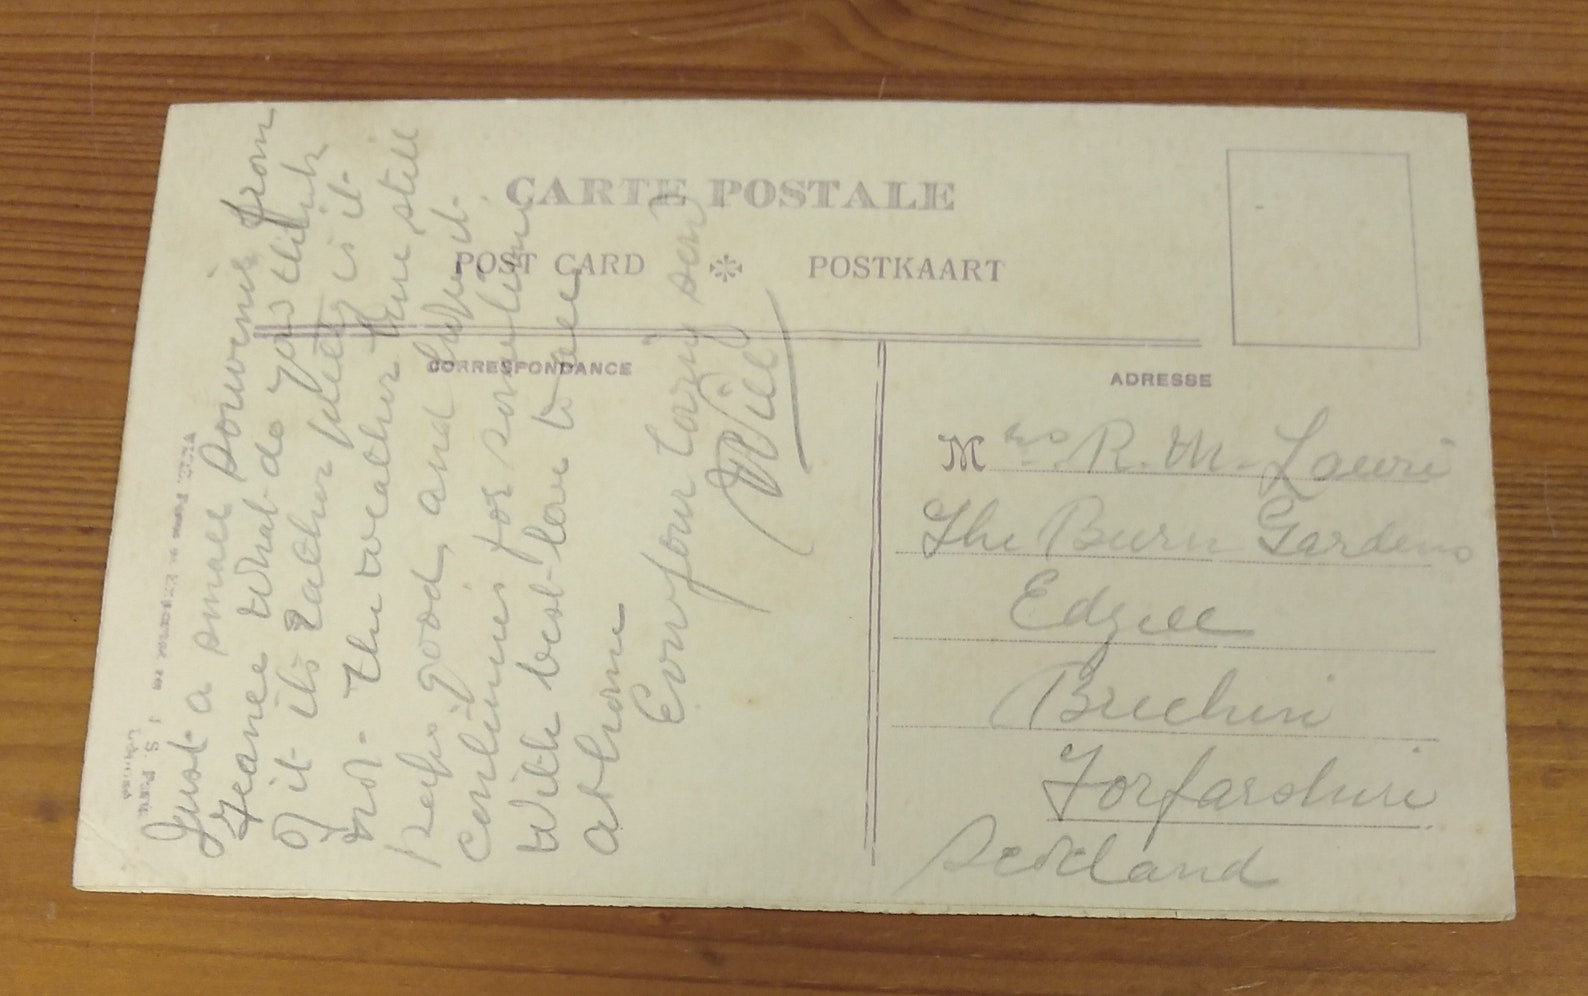 CARTE POSTALE
POST CARD POSTKAART
CORRESPONDANCE
Just a small souvenir from
France what do you think
of it its rather pretty is it
not. The weather here still
keeps good, and hope it
continues for sometime
With best love to all
at home
Ever your loving son
Will
ADRESSE
Mrs R. M. Lowri
The Burn Gardens
Edzell
Brechin
Forfarshire
Scotland